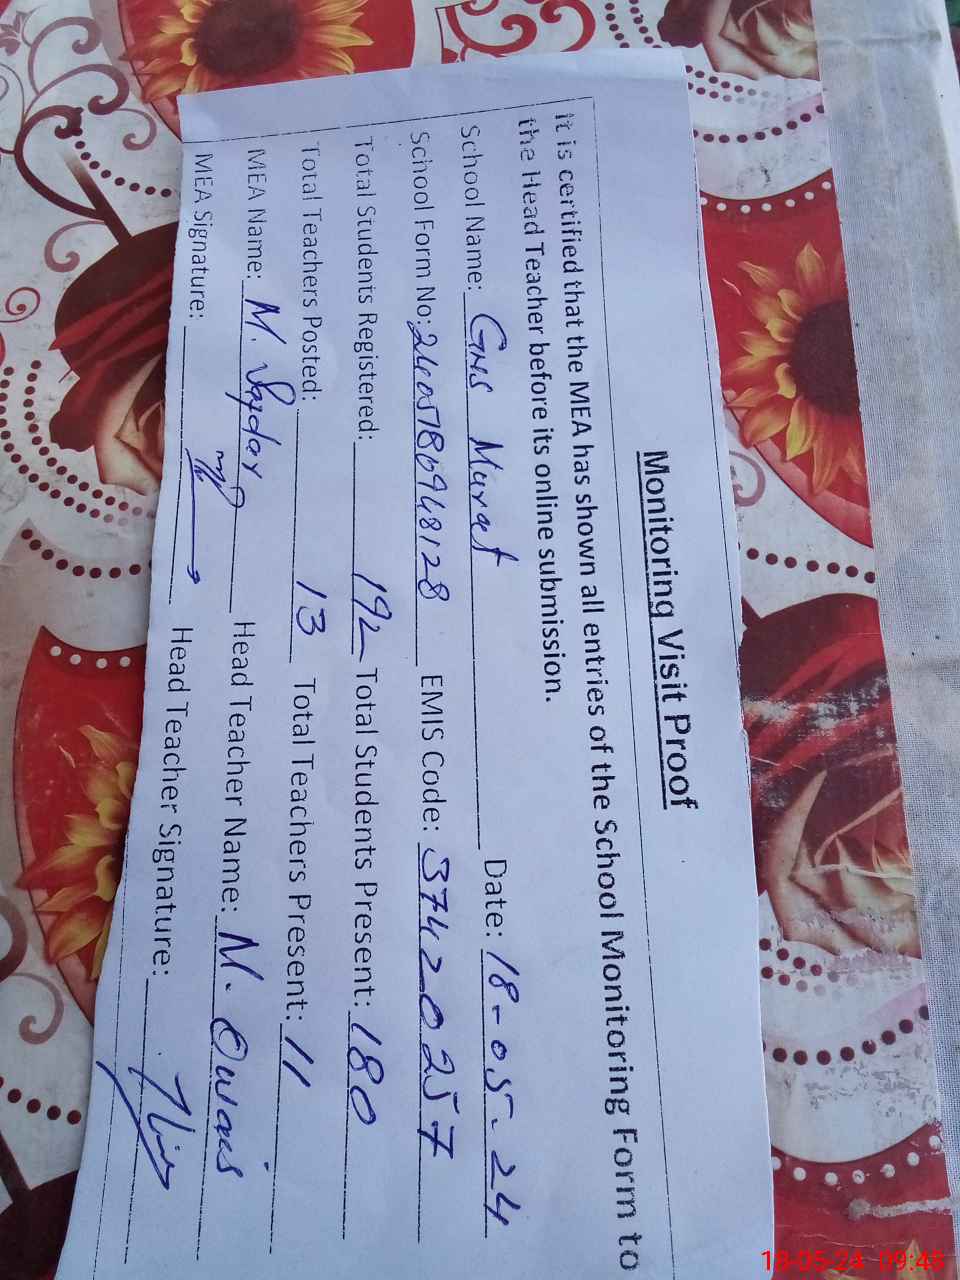 Monitoring Visit Proof
It is certified that the MEA has shown all entries of the School Monitoring Form to
the Head Teacher before its online submission.
School Name: GHS Murat Date: 18-05-24
School Form No: 2405180948128 EMIS Code: 37420257
Total Students Registered: 192 Total Students Present: 180
Total Teachers Posted: 13 Total Teachers Present: 11
MEA Name: M. Head Teacher Name: M. Owais
MEA Signature: Head Teacher Signature:
18-05-24 09:48